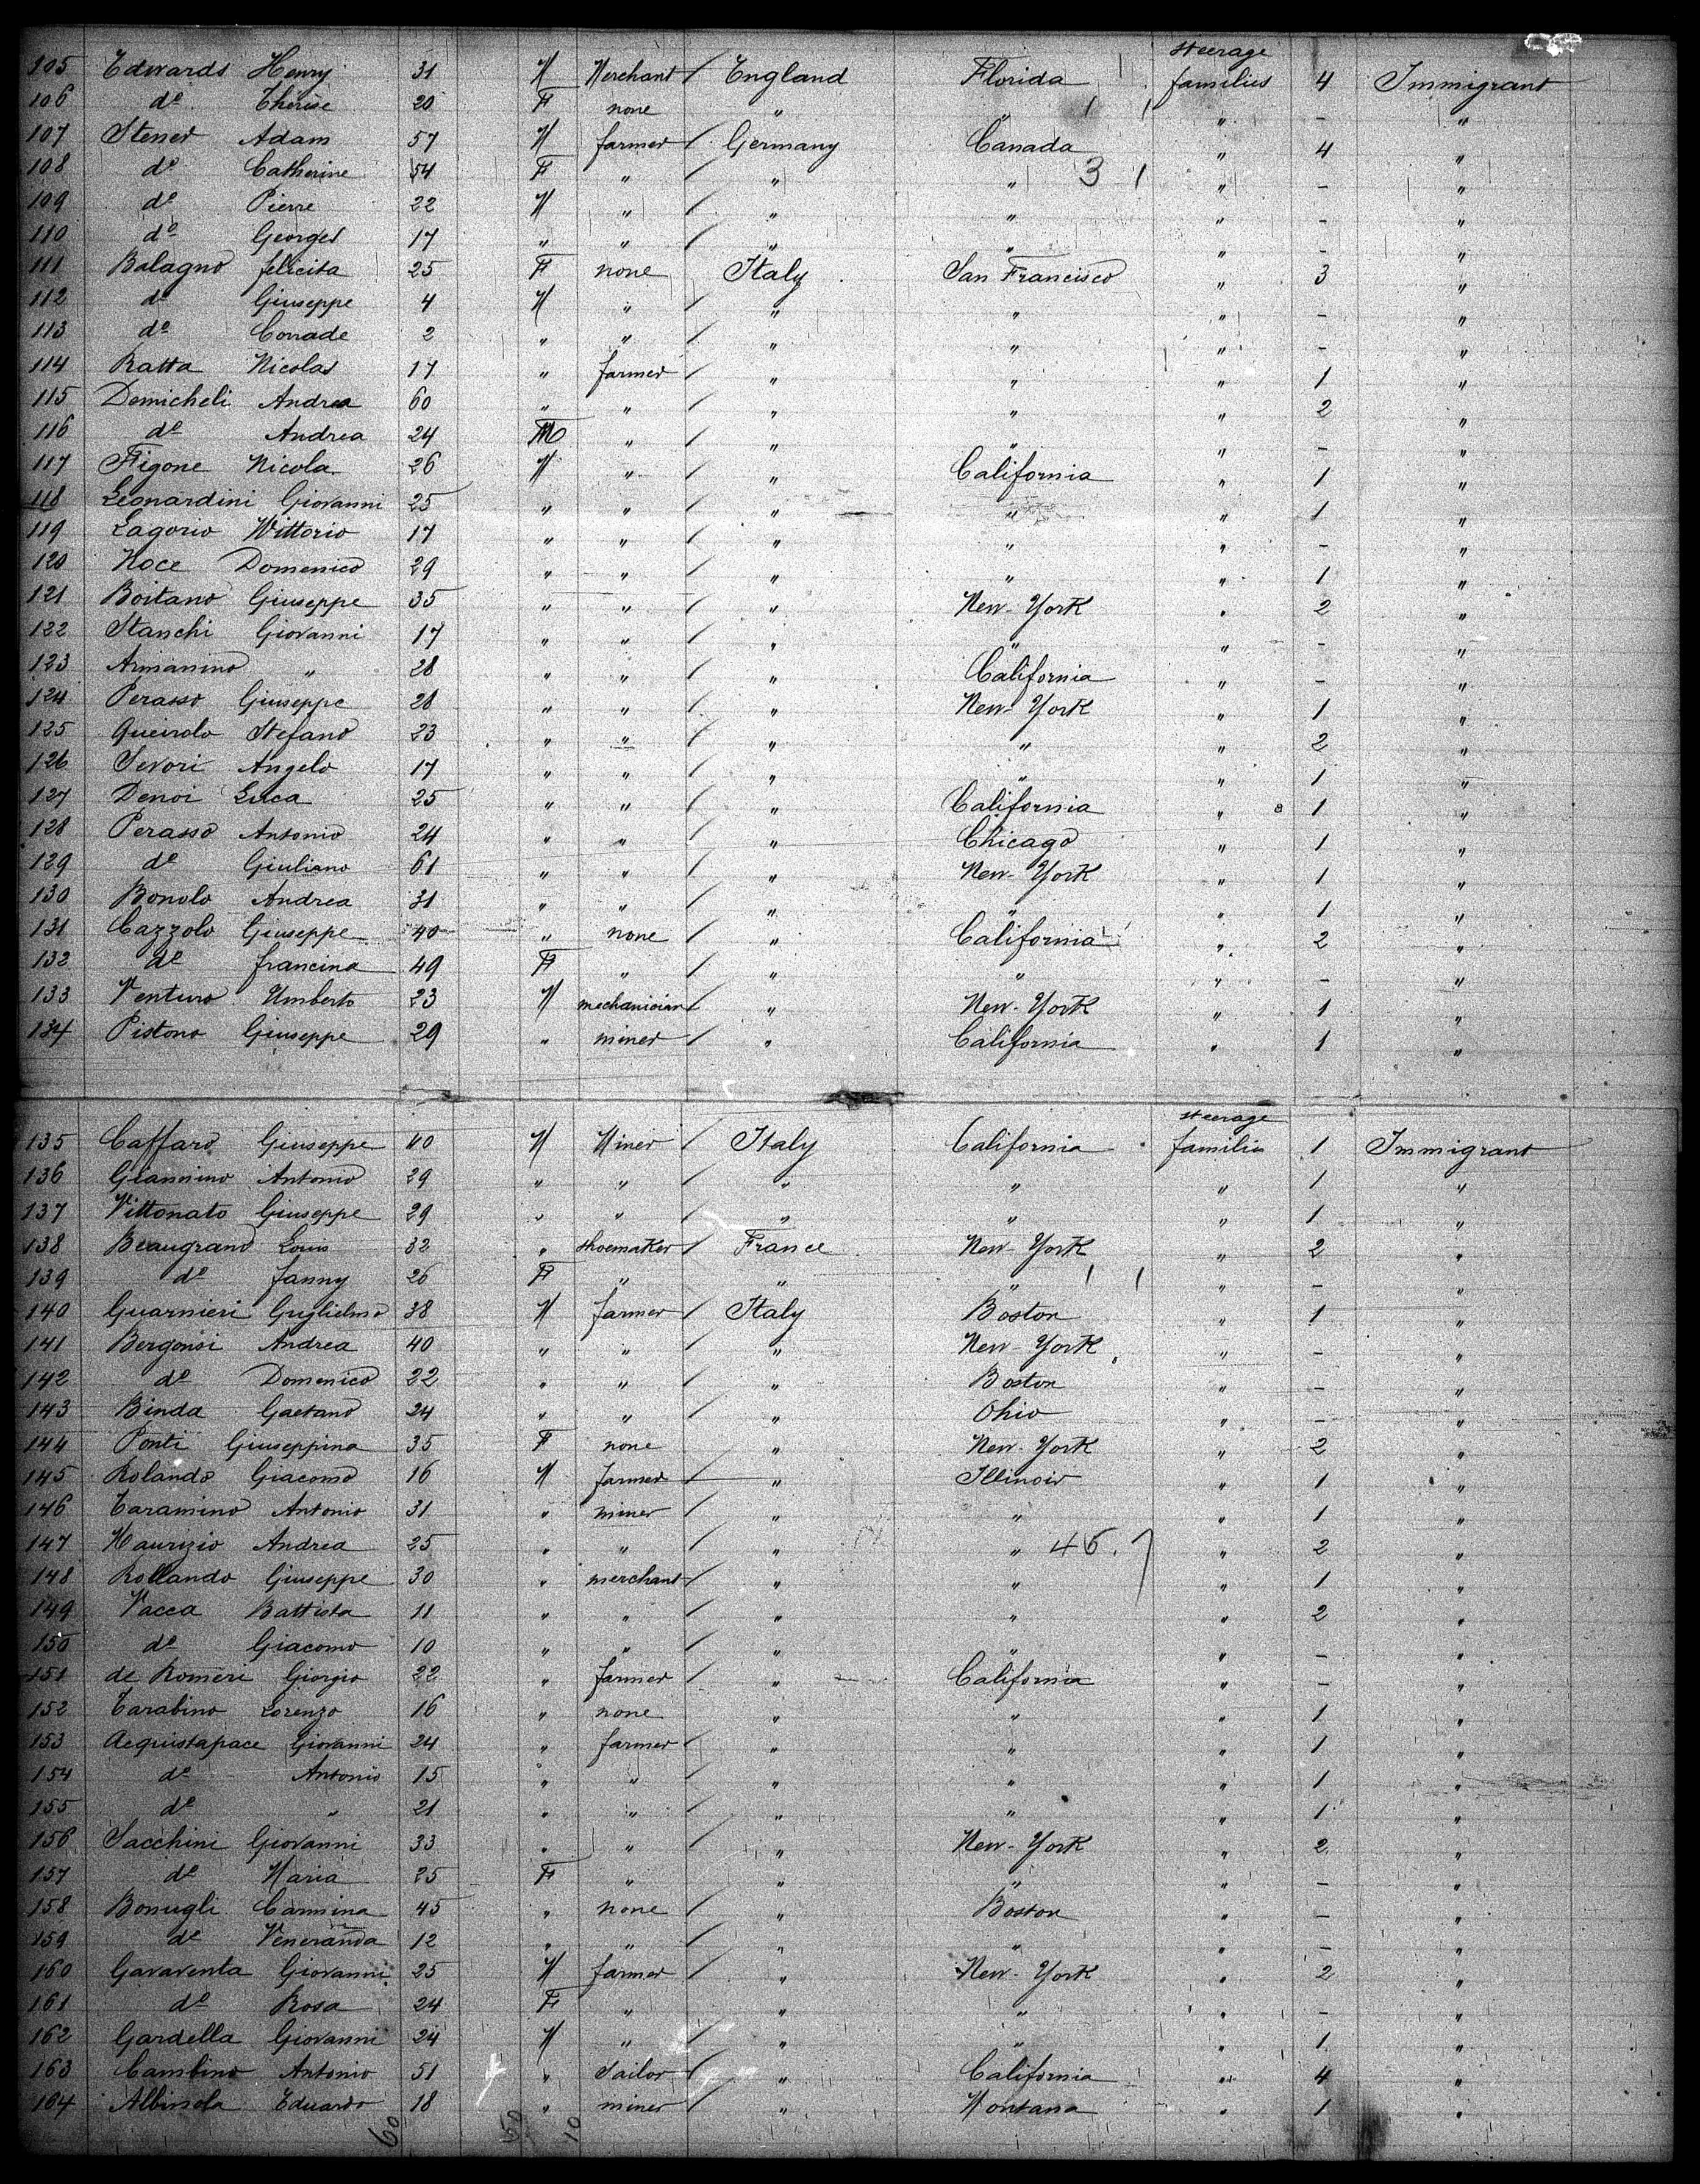 steerage
105 Edwards Henry 31 M Merchant England Florida families 4 Immigrant
106 do Therèse 20 F none " " " - "
107 Stener Adam 57 M farmer Germany Canada " 4 "
108 do Catherine 54 F " " " 3 1 " - "
109 do Pierre 22 M " " " " - "
110 do Georges 17 " " " " " - "
111 Balagno felicita 25 F none Italy San Francisco " 3 "
112 do Giuseppe 4 M " " " " - "
113 do Conrade 2 " " " " " - "
114 Ratta Nicolas 17 " farmer " " " 1 "
115 Demicheli Andrea 60 " " " " " 2 "
116 do Andrea 24 M " " " " - "
117 Figone Nicola 26 M " " California " 1 "
118 Leonardini Giovanni 25 " " " " " 1 "
119 Lagorio Vittorio 17 " " " " " - "
120 Noce Domenico 29 " " " " " 1 "
121 Boitano Giuseppe 35 " " " New-York " 2 "
122 Stanchi Giovanni 17 " " " " " - "
123 Armanino " 28 " " " California " - "
124 Perasso Giuseppe 28 " " " New-York " 1 "
125 Queirolo Stefano 23 " " " " " 2 "
126 Sevori Angelo 17 " " " " " 1 "
127 Denoi Luca 25 " " " California " 1 "
128 Perasso Antonio 24 " " " Chicago " 1 "
129 do Giuliano 61 " " " New-York " 1 "
130 Bonolo Andrea 31 " " " " " 1 "
131 Cazzolo Giuseppe 40 " none " California " 2 "
132 do francina 49 F " " " " - "
133 Venturo Umberto 23 M mechanician " New-York " 1 "
134 Pistono Giuseppe 29 " miner " California " 1 "
steerage
135 Caffaro Giuseppe 40 M Miner Italy California families 1 Immigrant
136 Giannino Antonio 29 " " " " " 1 "
137 Vittonato Giuseppe 29 " " " " " 1 "
138 Beaugrand Louis 32 " shoemaker France New-York " 2 "
139 do fanny 26 F " " " " - "
140 Guarnieri Guglielmo 38 M farmer Italy Boston " 1 "
141 Bergonsi Andrea 40 " " " New-York " - "
142 do Domenico 22 " " " Boston " - "
143 Binda Gaetano 24 " " " Ohio " - "
144 Ponti Giuseppina 35 F none " New-York " 2 "
145 Rolando Giacomo 16 M farmer " Illinois " 1 "
146 Taramino Antonio 31 " miner " " " 1 "
147 Maurizio Andrea 25 " " " " 46.7 " 2 "
148 Rollando Giuseppe 30 " merchant " " " 1 "
149 Vacca Battista 11 " " " " " 2 "
150 do Giacomo 10 " " " " " - "
151 de Romeri Giorgio 22 " farmer " California " - "
152 Tarabino Lorenzo 16 " none " " " 1 "
153 Acquistapace Giovanni 24 " farmer " " " 1 "
154 do Antonio 15 " " " " " 1 "
155 do " 21 " " " " " 1 "
156 Sacchini Giovanni 33 " " " New-York " 2 "
157 do Maria 25 F " " " " - "
158 Bonugli Carmina 45 " none " Boston " - "
159 do Veneranda 12 " " " " " - "
160 Garaventa Giovanni 25 M farmer " New-York " 2 "
161 do Rosa 24 F " " " " - "
162 Gardella Giovanni 24 M " " " " 1 "
163 Cambino Antonio 51 " Sailor " California " 4 "
164 Albinola Eduardo 18 " miner " Montana " 1 "
60 50 10